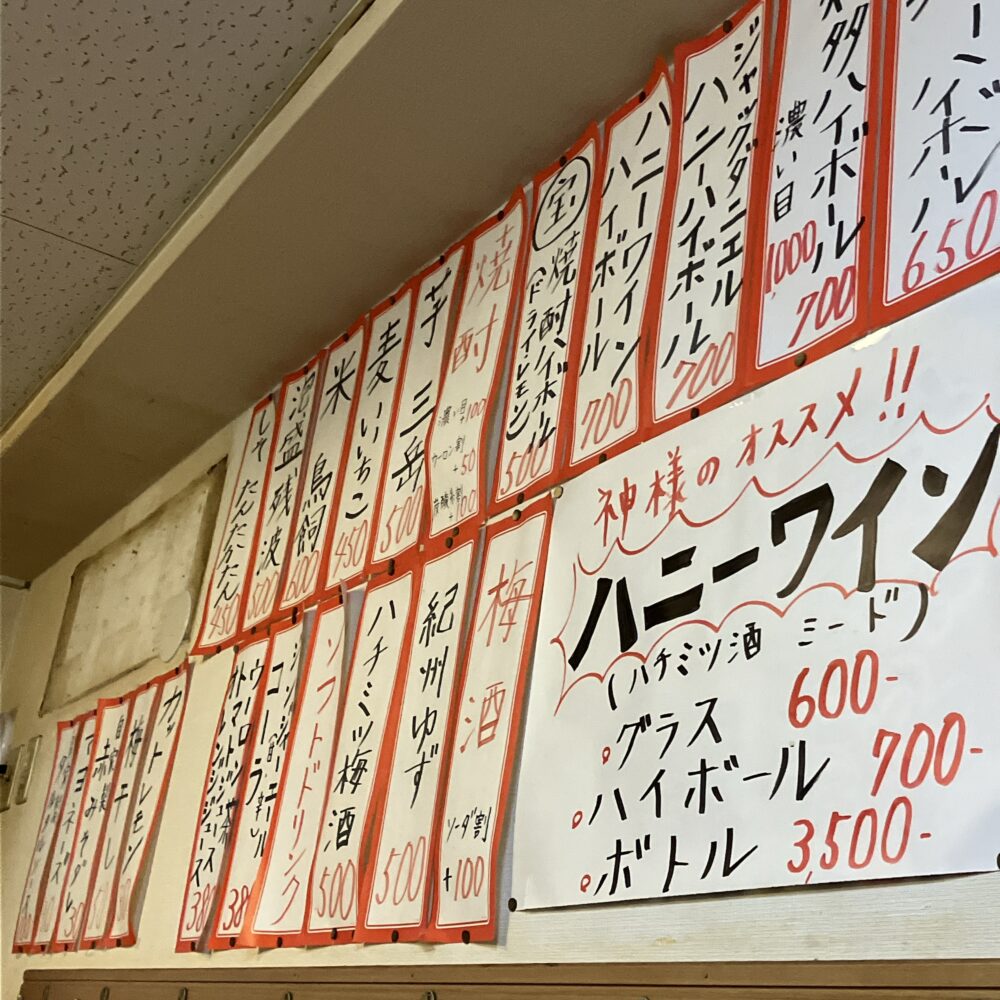 ーンハイボール
650
多ハイボール
濃い目
1000
700
ジャックダニエル
ハニーハイボール
700
ハニーワイン
ハイボール
700
宝焼酎ハイボール
(ドライ・レモン)
500
焼酎
濃い目
+100
ウーロン割
+50
芋 三岳
500
麦 いいちこ
450
米 鳥飼
600
泡盛 残波
500
しそ たんたかたん
450
神様のオススメ!!
ハニーワイン
(ハチミツ酒 ミード)
グラス 600-
ハイボール 700-
ボトル 3,500-
梅酒
ソーダ割
+100
紀州ゆず
500
ハチミツ梅酒
500
ソフトドリンク
コーラ
ウーロン茶
38
トマトジュース
オレンジジュース
38
カットレモン
梅干
マヨネーズ